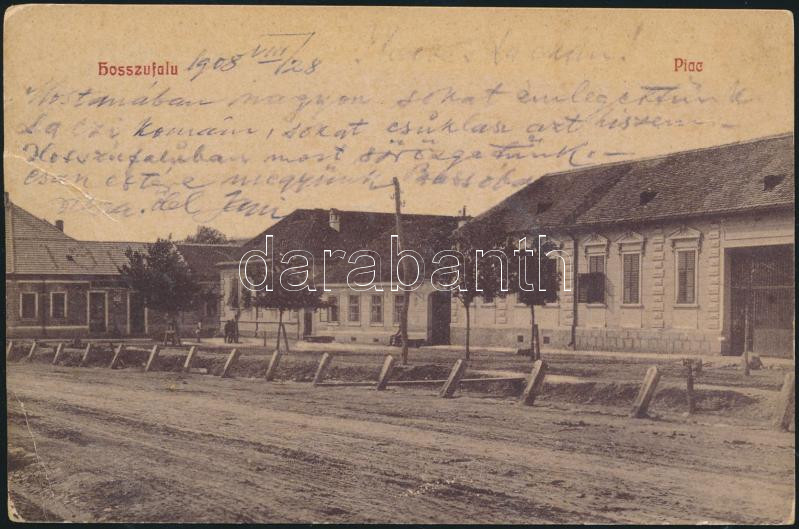 Hosszufalu 1908 VIII/28 Piac
Mostanában nagyon sokat emlegettünk
Laczi komám, sokat csuklasz azt hiszem –
Hosszufaluban most sörözgetünk. –
csak estére megyünk Brassoba
darabanth.com